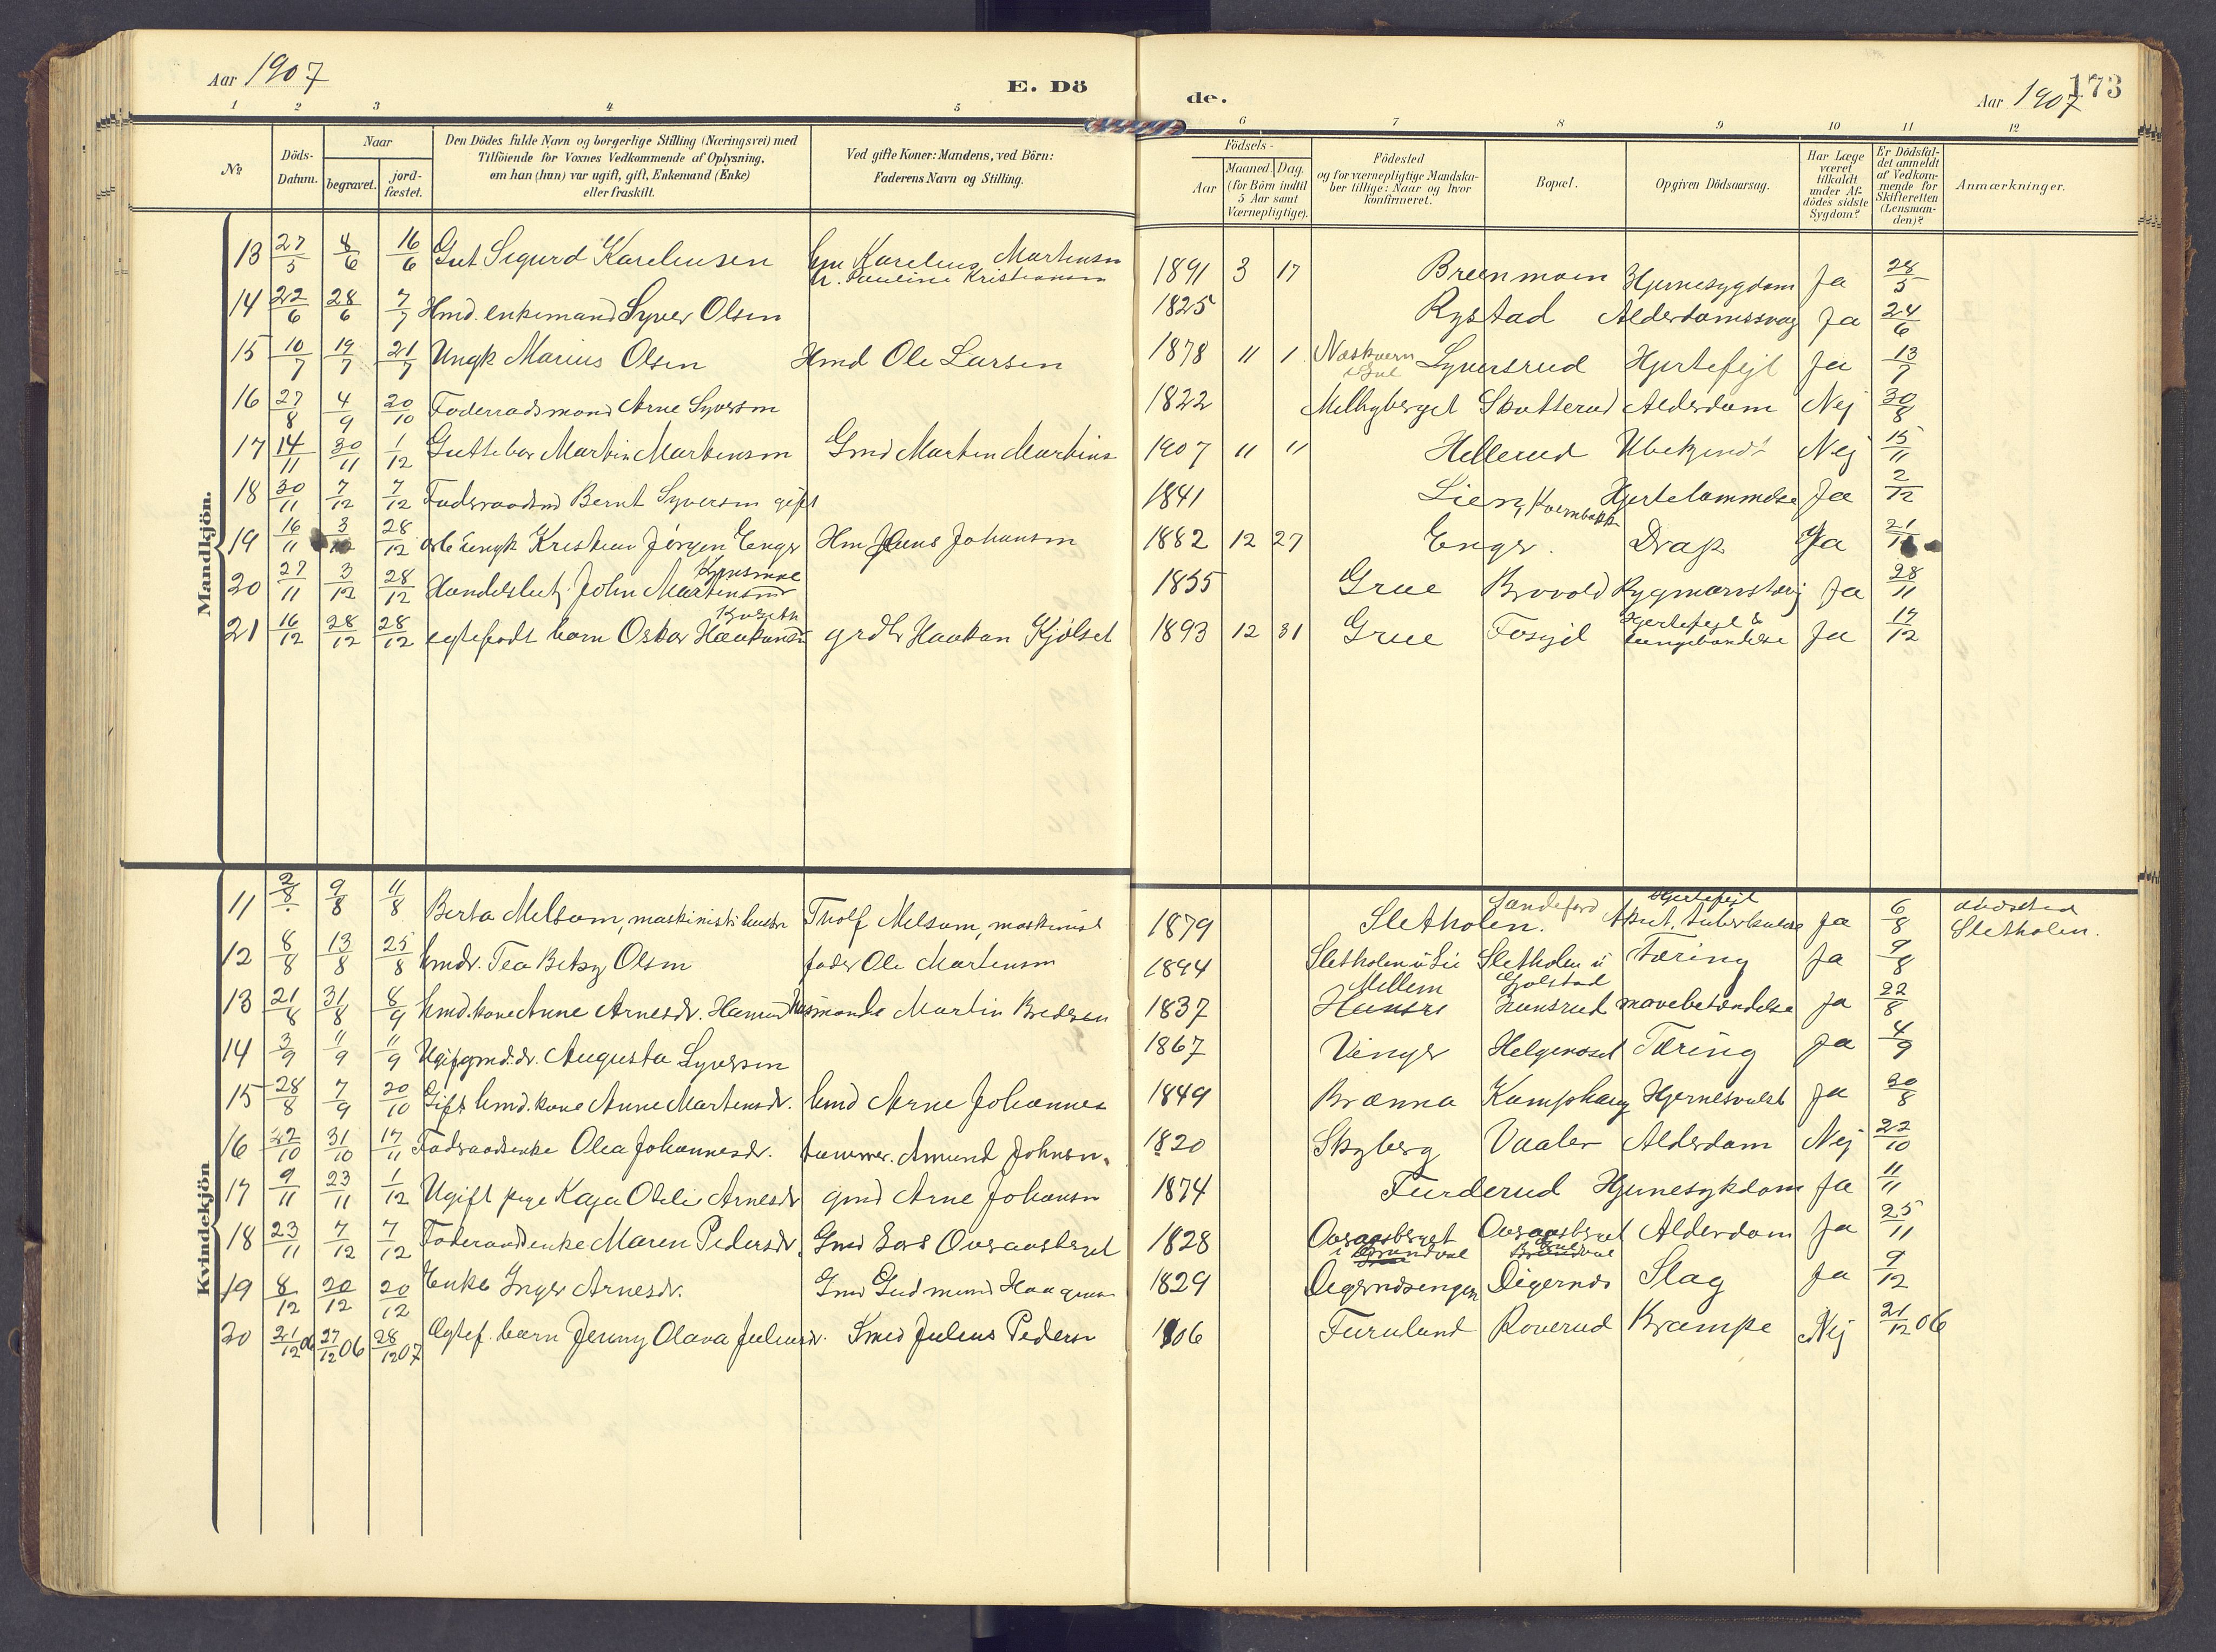 Aar 1907
E. Dö
de.
Aar 1907
173
1 2 3 4 5 6 7 8 9 10 11 12
No
Döds-Datum.
Naar
begravet.
jord-fæstet.
Den Dödes fulde Navn og borgerlige Stilling (Næringsvei) med
Tilföiende for Voxnes Vedkommende af Oplysning,
om han (hun) var ugift, gift, Enkemand (Enke)
eller fraskilt.
Ved gifte Koner: Mandens, ved Börn:
Faderens Navn og Stilling.
Födsels-
Aar
Maaned. Dag.
(for Börn indtil
5 Aar samt
Værnepligtige).
Födested
og for værnepligtige Mandska-
ber tillige: Naar og hvor
konfirmeret.
Bopæl.
Opgiven Dödsaarsag.
Har Læge
været
tilkaldt
under Af-
dödes sidste
Sygdom?
Er Dödsfal-
det anmeldt
af Vedkom-
mende for
Skifteretten
(Lensman-
den)?
Anmærkninger.
Mandkjön.
13 27/5 4/6 16/6 Gut Sigurd Kareliusen Karelius Martinsen 1891 3 17 Hjernesygdom Ja 28/5
Pauline Kristiansen
14 22/6 28/6 7/7 Hmd. enkemand Syver Olsen 1825 Rystad Ja 24/6
15 10/7 19/7 21/7 Ungk Marius Olsen Hmd Ole Larsen 1878 11 1 Syversrud Hjertefejl Ja 13/7
16 27/8 4/9 20/10 Foderraadsmand Arne Syversen 1822 Skutterud Alderdom Nej 30/8
17 14/11 30/11 1/12 Guttebar Martin Martinsen Gmd Martin Martins 1907 11 11 Hellerud Ubekjendt Nej 15/11
18 30/11 7/12 7/12 Bernt Syversen gift 1841 Lien, Kvernbakk Hjertelammelse Ja 2/12
19 16/11 3/12 28/12 ungk Kristian Jørgen Enger Hm Jens Johansen 1882 12 27 Enger. Drap Ja 21/11
20 27/11 3/12 28/12 Handelsbetj. John Martinsen 1855 Grue Brovold Ja 28/11
21 16/12 28/12 28/12 egtefødt barn Oskar Haakonsen grdbr Haakon Kjölset 1893 12 31 Grue Hjertefejl & Ja 17/12
lungebetændelse
Kvindekjön
11 2/8 9/8 11/8 Berta Melsom, maskinists hustru Melsom, maskinist 1879 Sletholen. Sandefjord Hjertefejl Ja 6/8
Akut. tuberkulose Sletholen.
12 8/8 13/8 25/8 Tea Betzy Olsen fader Ole Martinsen 1894 Sletholen i Lie Sletholen i Tæring Ja 9/8
13 21/8 31/8 8/9 hmd. kone Anne Arnesdr. Martin Bredesen 1837 Mellem Hunsrud mavebetændelse Ja 22/8
14 3/9 11/9 11/9 Augusta Syversen 1867 Vinger Helgenæset Tæring Ja 4/9
15 28/8 7/9 20/10 Gift hmd. kone Anne Martinsdr. hmd Arne Johannes 1849 Brænna Kamphaug Hjernesvulst Ja 30/8
16 22/10 31/10 17/11 Foderaadsenke Olea Johannesdr. tømmer. Amund Johnsen. 1820 Skyberg Vaaler Alderdom Nej 22/10
17 9/11 23/11 1/12 Ugift pige Kaja Otelie Arnesdr gmd Arne Johansen 1874 Furderud Hjernesykdom Ja 11/11
18 23/11 7/12 7/12 Foderaadsenke Maren Pedersdr. Gmd Lars Overaasberget 1828 Overaasberget Overaasberget Alderdom Ja 25/11
19 8/12 20/12 20/12 Enke Inger Arnesdr. Gmd Gudmund 1829 Digernæsengen Digernæs Slag Ja 9/12
20 21/12 06 27/12 06 28/12 07 Egtef. barn Jenny Olava Juliusdr. Smed Julius Pedersen 1906 Furulund Roverud Krampe Nej 21/12 06